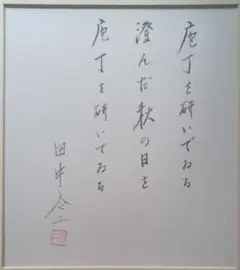 庖丁を研いでゐる
澄んだ秋の日を
庖丁を研いでゐる
田中冬二